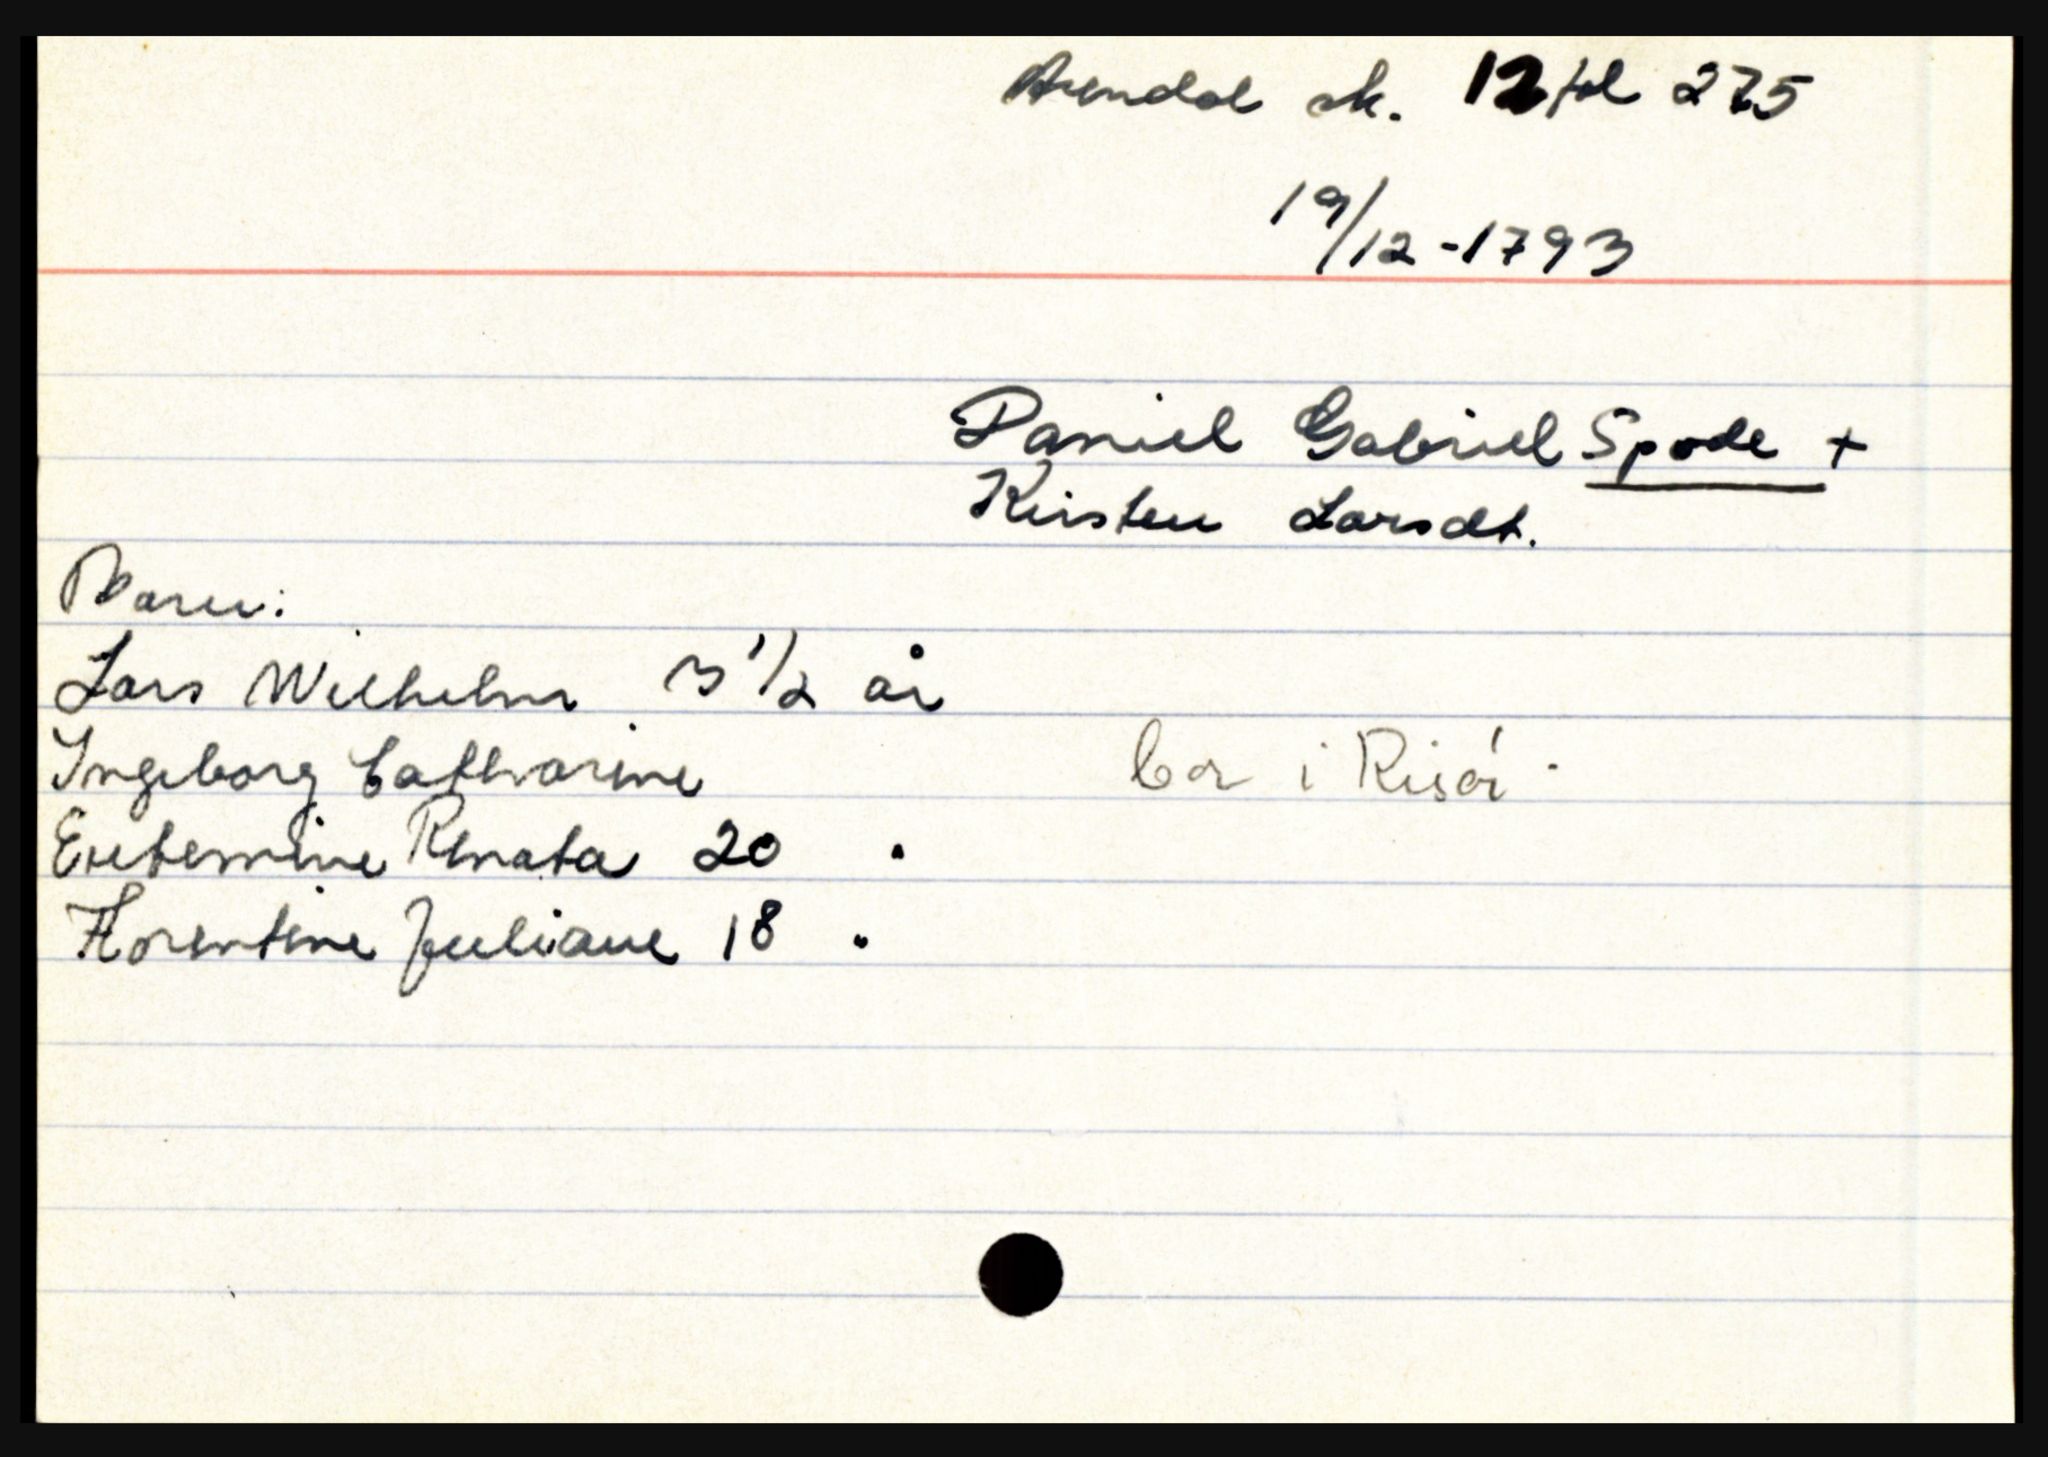 Arendal sk. 12 fol 275
19/12-1793
Daniel Gabriel Spode +
Kirsten Larsdt.
Barn:
Lars Wilhelm 3 1/2 år
Ingeborg Catharine bor i Risør.
Renata 20 "
Florentine Juliane 18 "